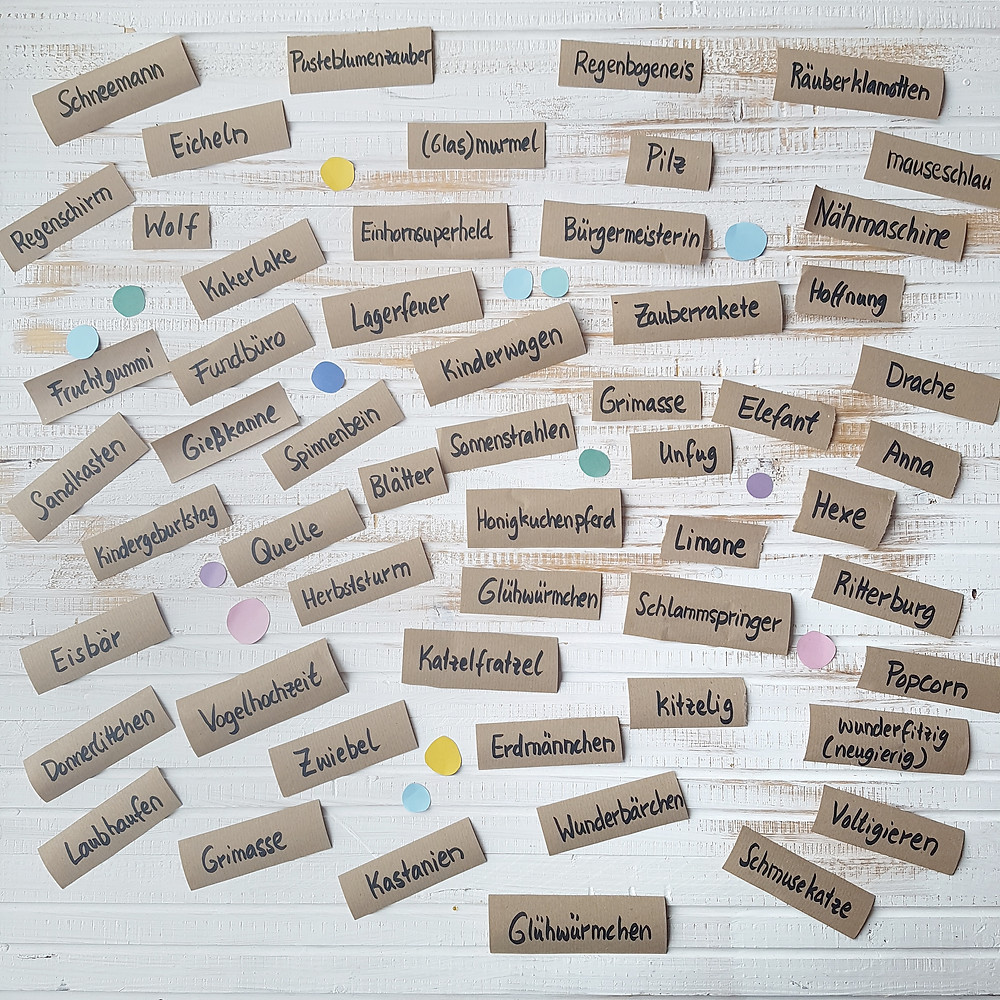 Schneemann
Pusteblumenzauber
Regenbogeneis
Räuberklamotten
Eicheln
(Glas)murmel
Pilz
mauseschlau
Regenschirm
Wolf
Einhornsuperheld
Bürgermeisterin
Nähmaschine
Kakerlake
Lagerfeuer
Zauberrakete
Hoffnung
Fruchtgummi
Fundbüro
Kinderwagen
Drache
Gießkanne
Spinnenbein
Grimasse
Elefant
Sandkasten
Blätter
Sonnenstrahlen
Unfug
Anna
Kindergeburtstag
Quelle
Honigkuchenpferd
Limone
Hexe
Herbststurm
Glühwürmchen
Schlammspringer
Ritterburg
Eisbär
Vogelhochzeit
Katzelfratzel
Kitzelig
Popcorn
Donnerlittchen
Zwiebel
Erdmännchen
wunderfitzig
(neugierig)
Laubhaufen
Grimasse
Kastanien
Wunderbärchen
Voltigieren
Schmusekatze
Glühwürmchen